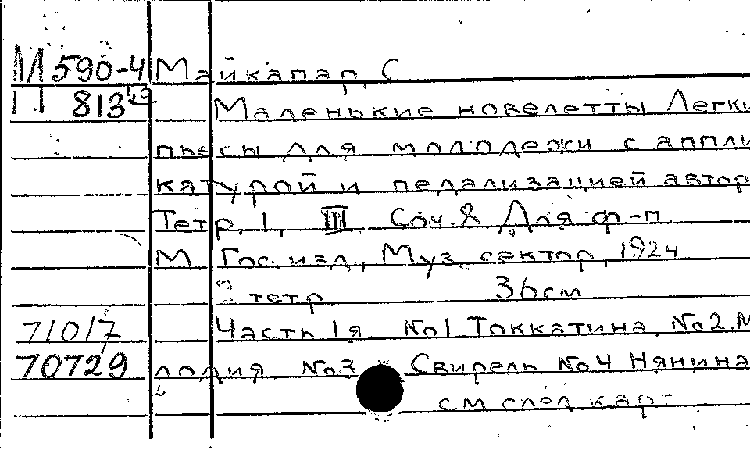 М 590-4 Майкапар, С.
П 813 Маленькие новелетты Легки
пьесы для молодежи с аппли
катурой и педализацией автор
Тетр. 1, III Соч. 8 Для ф-п
М Гос. изд., Муз. сектор, 1924
2 тетр. 36см
71017 Часть 1я No1 Токкатина. No2. М
70729 лодия No3 Свирель No4 Нянина
см след карт